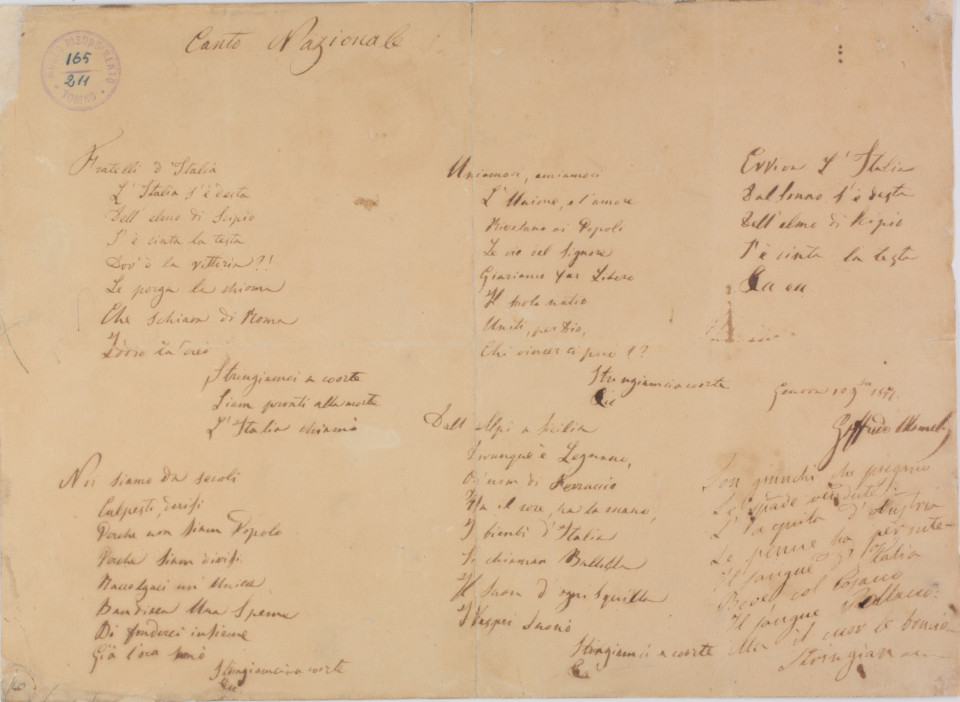 Canto Nazionale
165
211
Fratelli d'Italia
L'Italia s'è desta
Dell'elmo di Scipio
S'è cinta la testa
Dov'è la vittoria?!
Le porga la chioma
Che schiava di Roma
Iddio la creò
Stringiamci a coorte
Siam pronti alla morte
L'Italia chiamò
Noi siamo da secoli
Calpesti, derisi
Perchè non siam Popolo
Perchè siam divisi
Raccolgaci un'Unica
Bandiera Una Speme
Di fonderci insieme
Già l'ora suonò
Stringiamci a coorte
Uniamoci, amiamoci
L'Unione, e l'amore
Rivelano ai Popoli
Le vie del Signore
Giuriamo far Libero
Il suolo natio
Uniti, per Dio,
Chi vincer ci può!?
Stringiamci a coorte
Dall'Alpi a Sicilia
Dovunque è Legnano,
Ogn'uom di Ferruccio
Ha il core, ha la mano,
I bimbi d'Italia
Si chiaman Balilla
Il Suon d'ogni squilla
I Vespri Suonò
Stringiamci a coorte
Evviva L'Italia
Dal sonno s'è desta
Dell'elmo di Scipio
S'è cinta la testa
Genova 10 9bre 1847.
Goffredo Mameli
Son giunchi che piegano
Le Spade vendute:
L'Aquila d'Austria
Le penne ha perdute
Il sangue d'Italia
Bevè col Cosacco
Il sangue Polacco:
Ma il cuor le bruciò
Stringiam